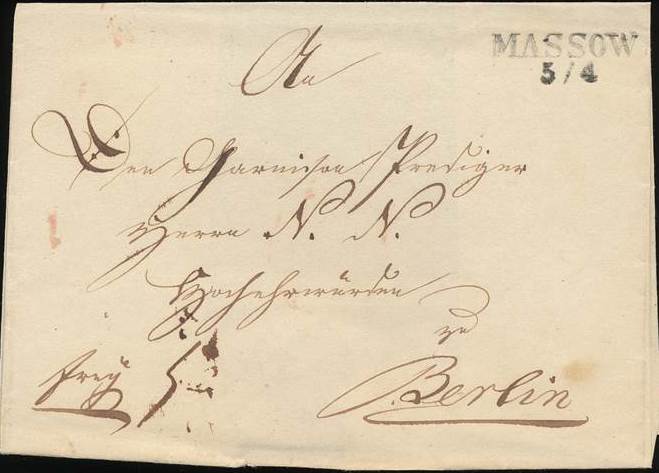 MASSOW
5/4
An
Den Garnison Prediger
Herrn N. N.
Hochehrwürden
zu
frey
Berlin